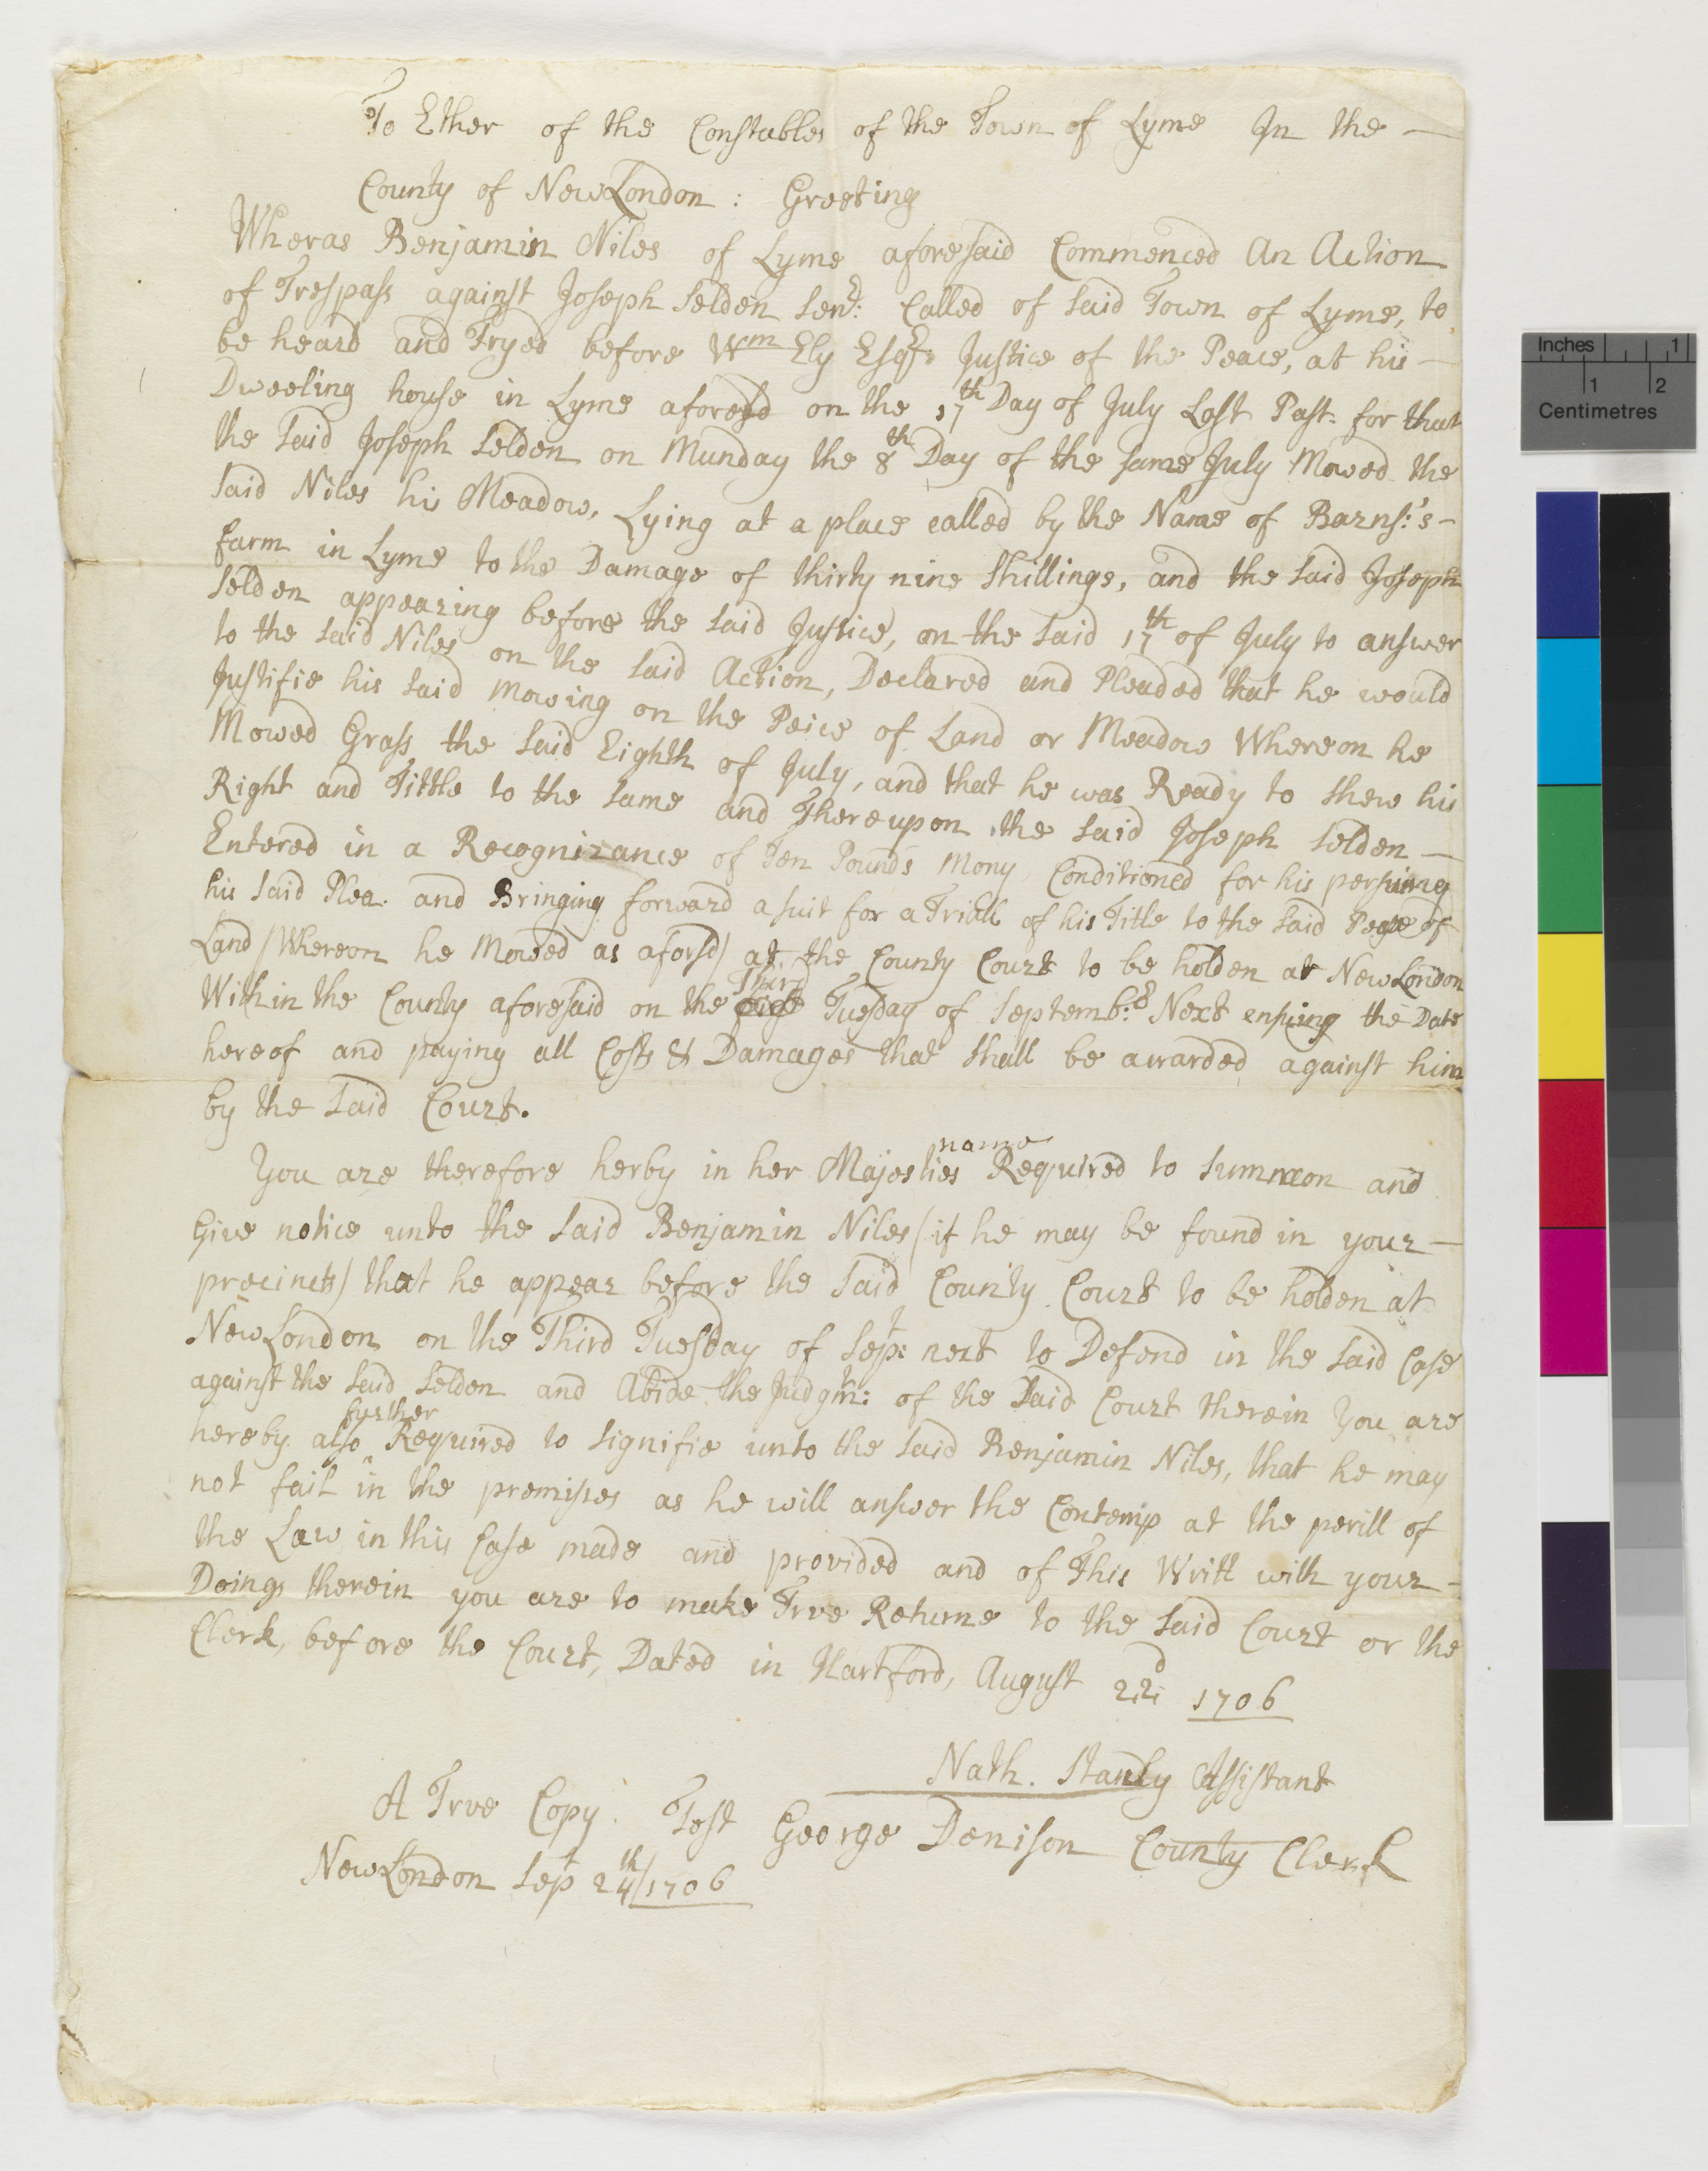 To Ether of the Constables of the Town of Lyme In the —
County of NewLondon : Greeting
Wheras Benjamin Niles of Lyme aforesaid Commenced An Action
of Trespass against Joseph Selden Senr: Called of said Town of Lyme, to
be heard and Tryed before Wm Ely Esqr: Justice of the Peace, at his —
Dweeling house in Lyme aforesd on the 17th Day of July Last Past. for that
the said Joseph Selden on Munday the 8th Day of the same July Mowed the
said Niles his Meadow, Lying at a place called by the Name of Barns:'s -
farm in Lyme to the Damage of thirty nine Shillings, and the said Joseph
Selden appearing before the said Justice, on the said 17th of July to answer
to the said Niles on the said Action, Declared and Pleaded that he would
Justifie his said mowing on the Peice of Land or Meadow Whereon he
Mowed Grass the said Eighth of July, and that he was Ready to shew his
Right and Tittle to the same and Thereupon the said Joseph Selden —
Entered in a Recognizance of Ten Pounds Mony Conditioned for his persuing
his said Plea. and Bringing forward a suit for a Triall of his Title to the said Peice of
Land (Whereon he Mowed as aforsd) at the County Court to be holden at NewLondon
Third
Within the County aforesaid on the Tuesday of Septembr: Next ensuing the Date
hereof and paying all Costs & Damages that shall be awarded against him
by the said Court.
name
You are therefore herby in her Majesties Required to summon and
Give notice unto the said Benjamin Niles (if he may be found in your —
precincts) that he appear before the said County Court to be holden at
NewLondon on the Third Tuesday of Sept: next to Defend in the said Case
against the said Selden and Abide the Judgmt: of the said Court therein You are
further
hereby also Required to signifie unto the said Benjamin Niles, that he may
not fail in the premises as he will answer the Contemp at the perill of
the Law in this Case made and provided and of This Writt with your -
Doings therein you are to make True Returne to the said Court or the
Clerk, before the Court, Dated in Hartford, August 22d 1706
Nath. Stanly Assistant
A True Copy. Test George Denison County Clerk
NewLondon Sept 24th/1706
Inches 1
1 2
Centimetres